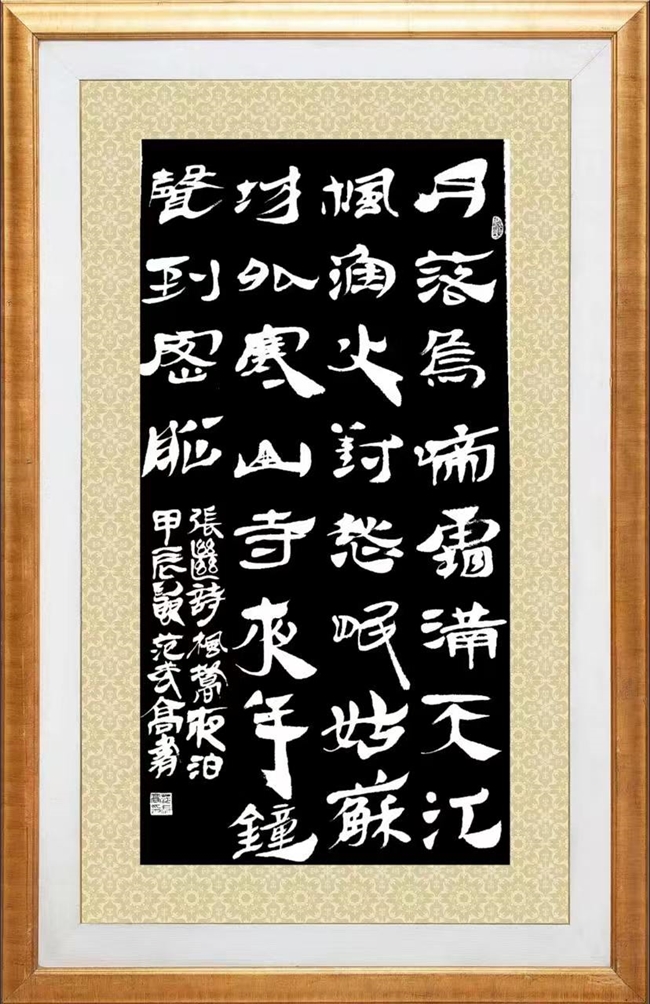 月落烏啼霜滿天江
楓漁火對愁眠姑蘇
城外寒山寺夜半鐘
聲到客船
張繼詩楓橋夜泊
甲辰夏范武高書